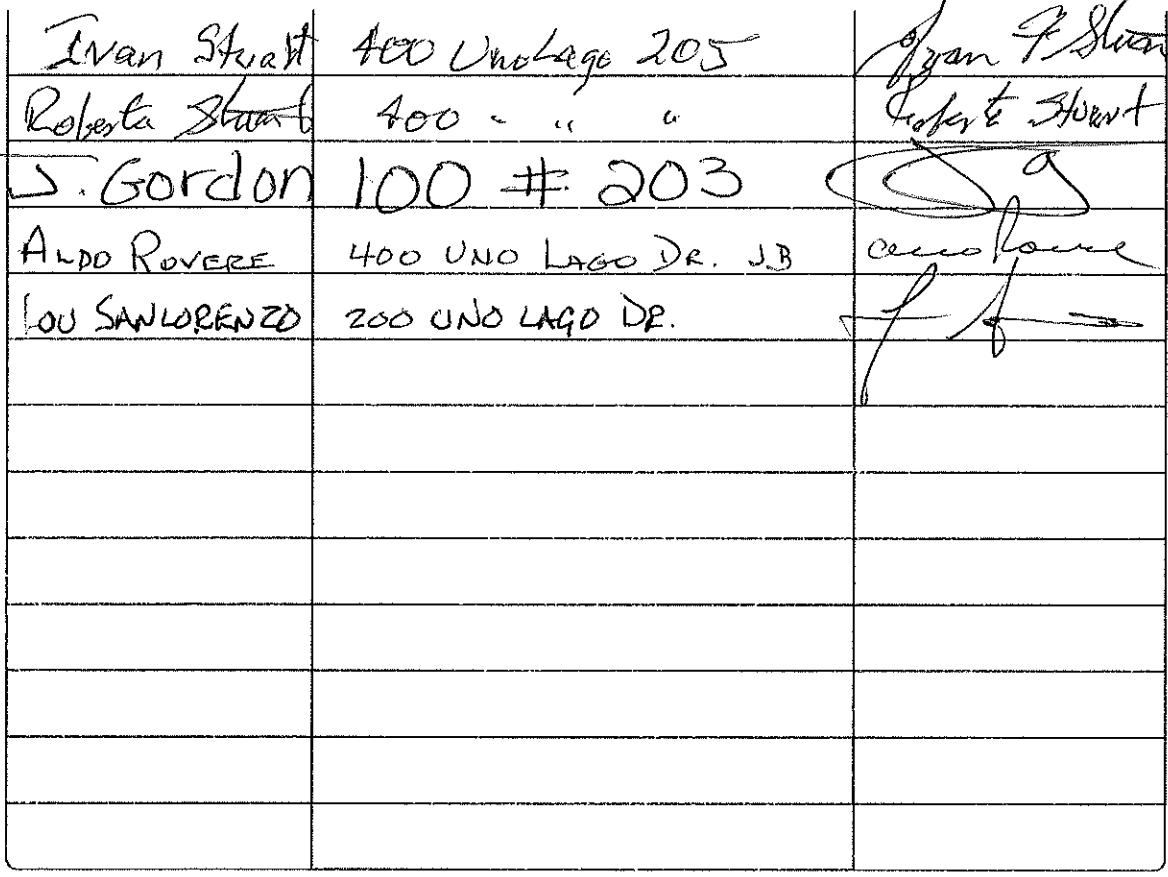 Ivan Stuart 400 Uno Lago 205 Ivan F Stuart
Roberta Stuart 400 " " " Roberta Stuart
J. Gordon 100 # 203
ALDO ROVERE 400 UNO LAGO DR. J.B
LOU SANLORENZO 200 UNO LAGO DR.